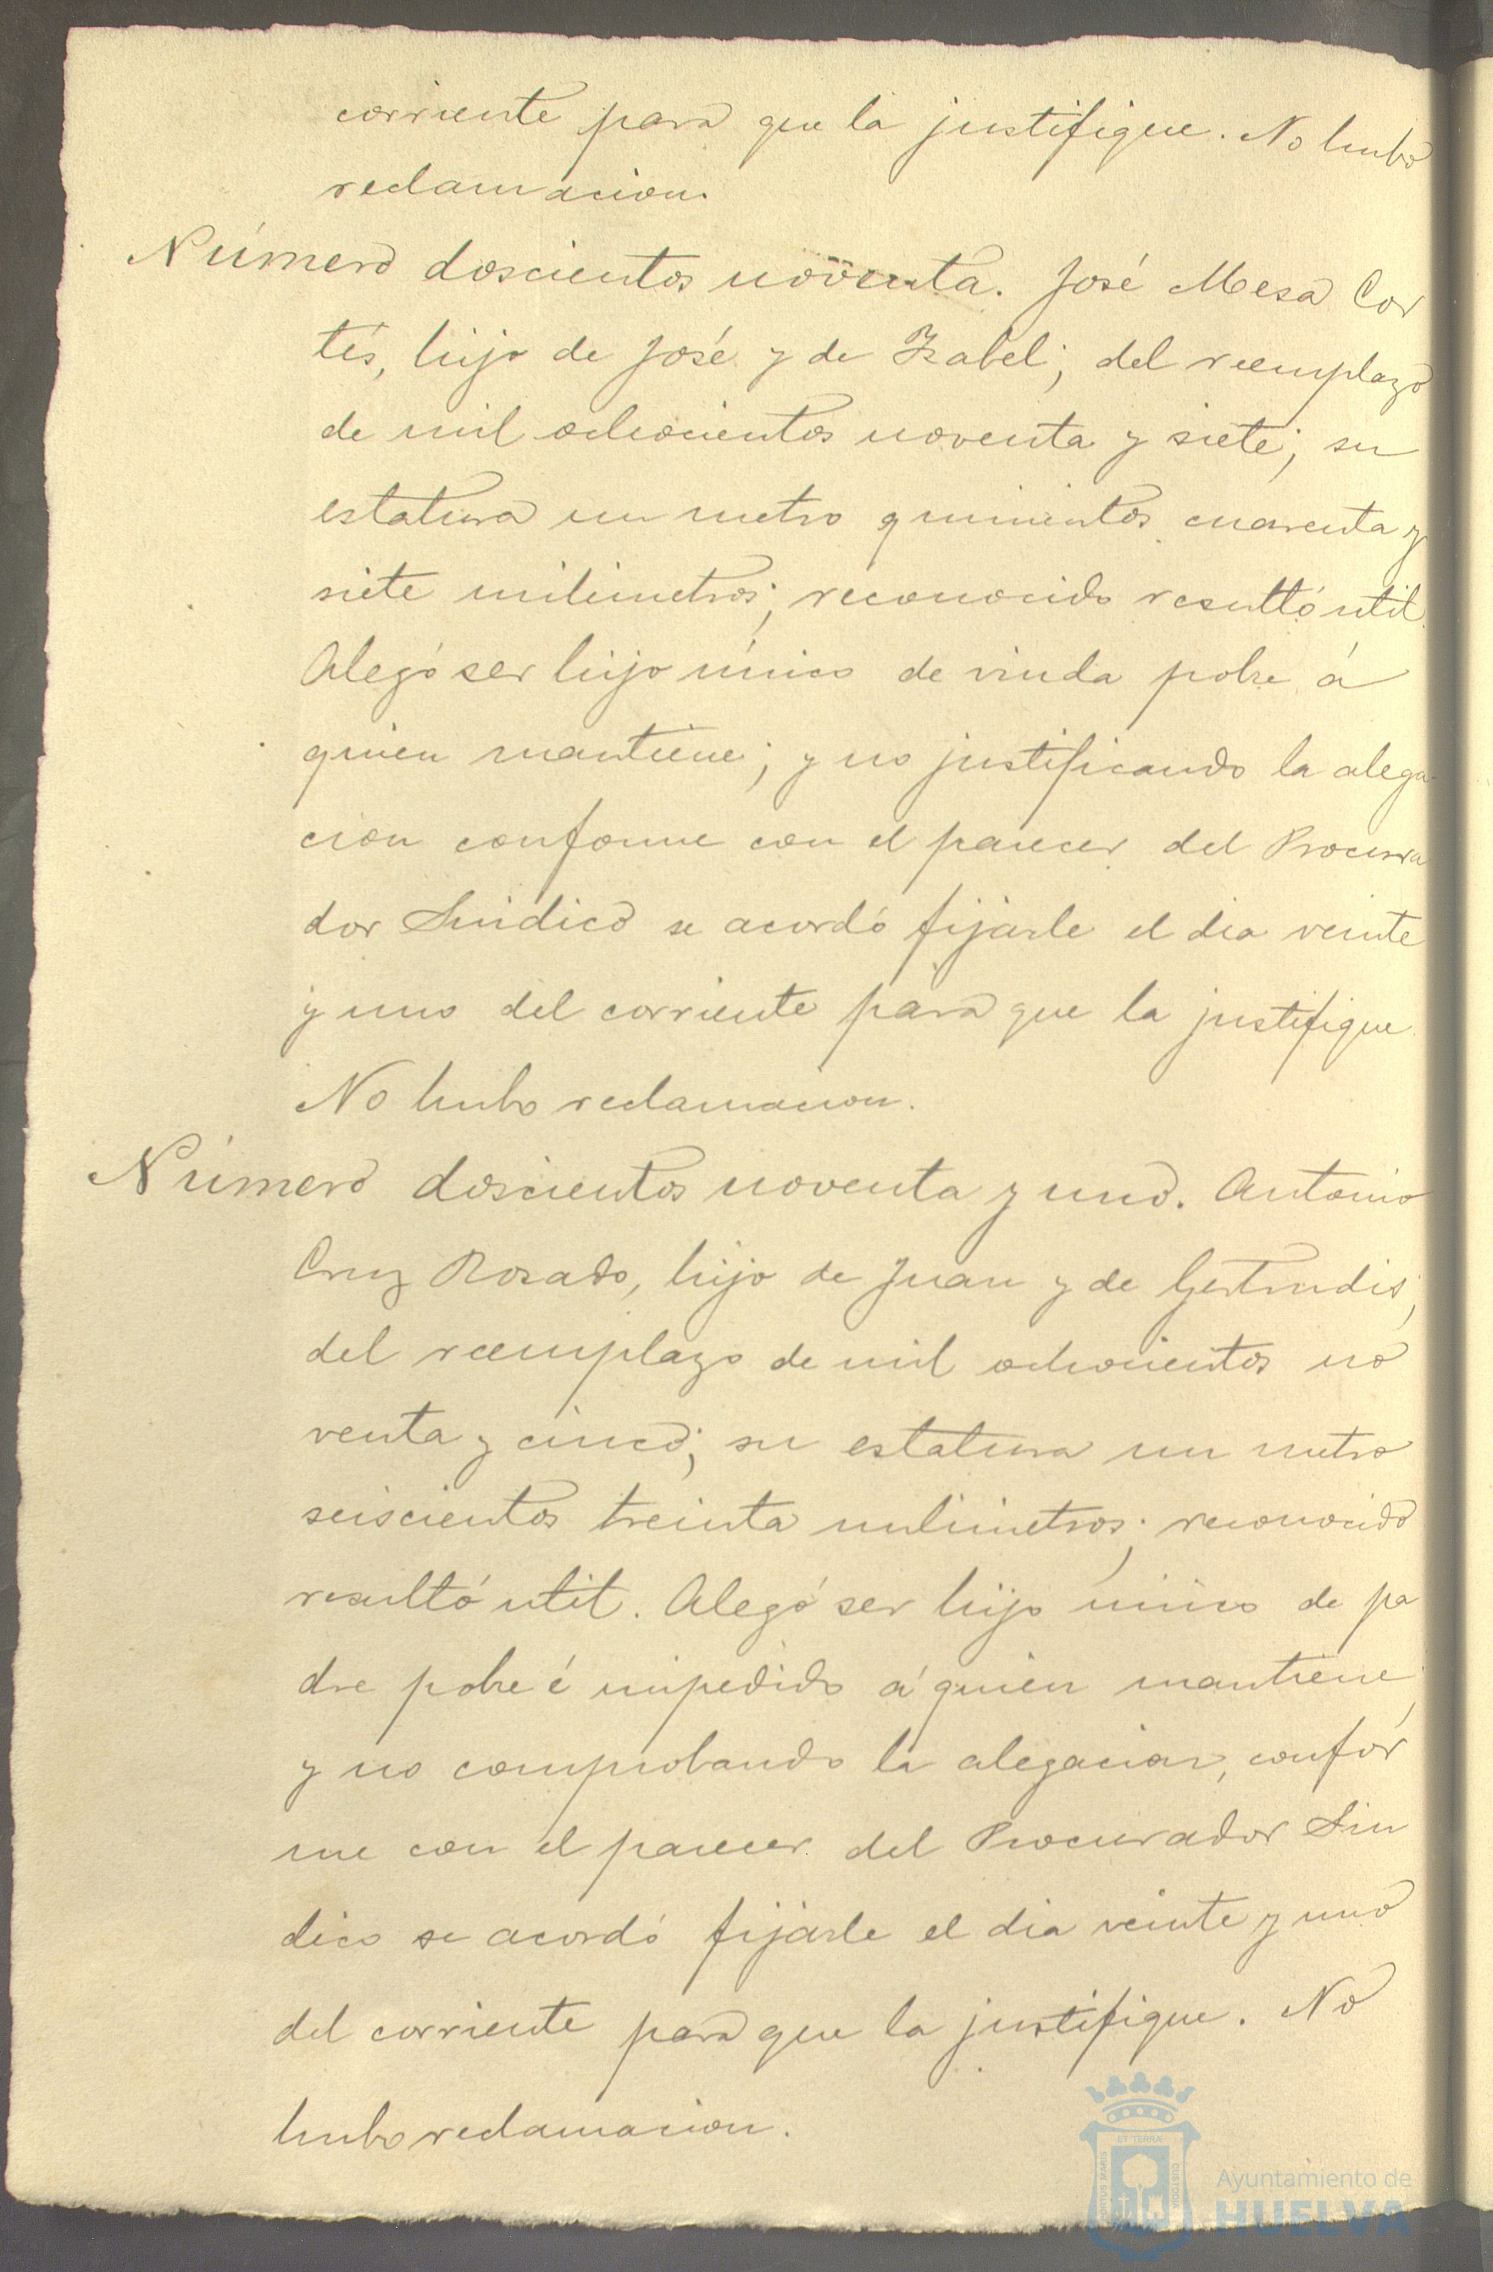 corriente para que la justifique. No hubo
reclamacion.
Número doscientos noventa. José Mesa Cor
tés, hijo de José y de Isabel; del reemplazo
de mil ochocientos noventa y siete; su
estatura un metro quinientos cuarenta y
siete milimetros; reconocido resultó util.
Alegó ser hijo único de viuda pobre á
quien mantiene; y no justificando la alega
cion conforme con el parecer del Procura
dor Sindico se acordó fijarle el dia veinte
y uno del corriente para que la justifique.
No hubo reclamacion.
Número doscientos noventa y uno. Antonio
Cruz Rosado, hijo de Juan y de Gertrudis;
del reemplazo de mil ochocientos no
venta y cinco; su estatura un metro
seiscientos treinta milimetros; reconocido
resultó util. Alegó ser hijo único de pa
dre pobre é impedido á quien mantiene,
y no comprobando la alegacion, confor
me con el parecer del Procurador Sin
dico se acordó fijarle el dia veinte y uno
del corriente para que la justifique. No
hubo reclamacion.
PORTUS MARIS
ET TERRÆ
CUSTODIA
Ayuntamiento de
HUELVA